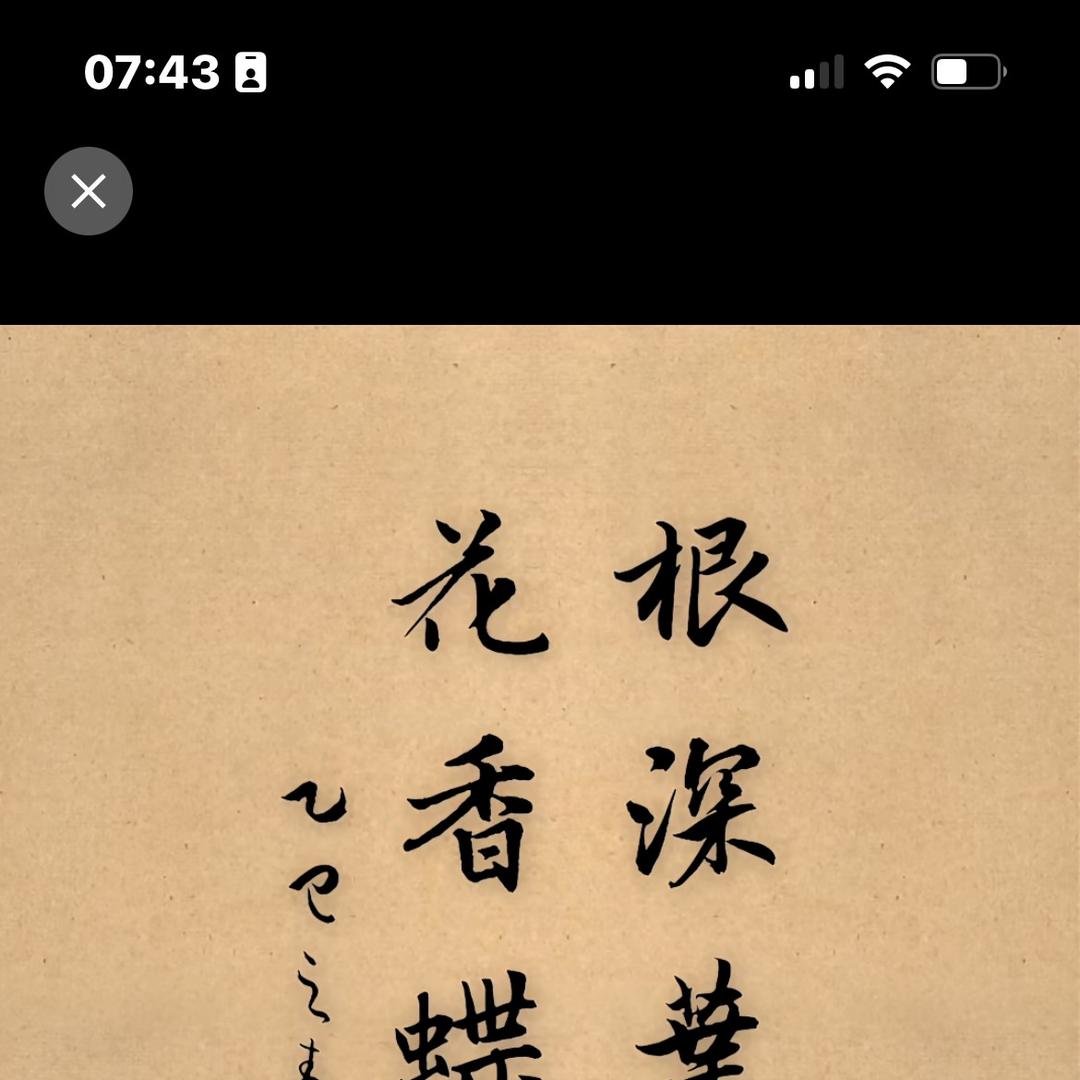 07:43
根深葉
花香蝶
乙巳之